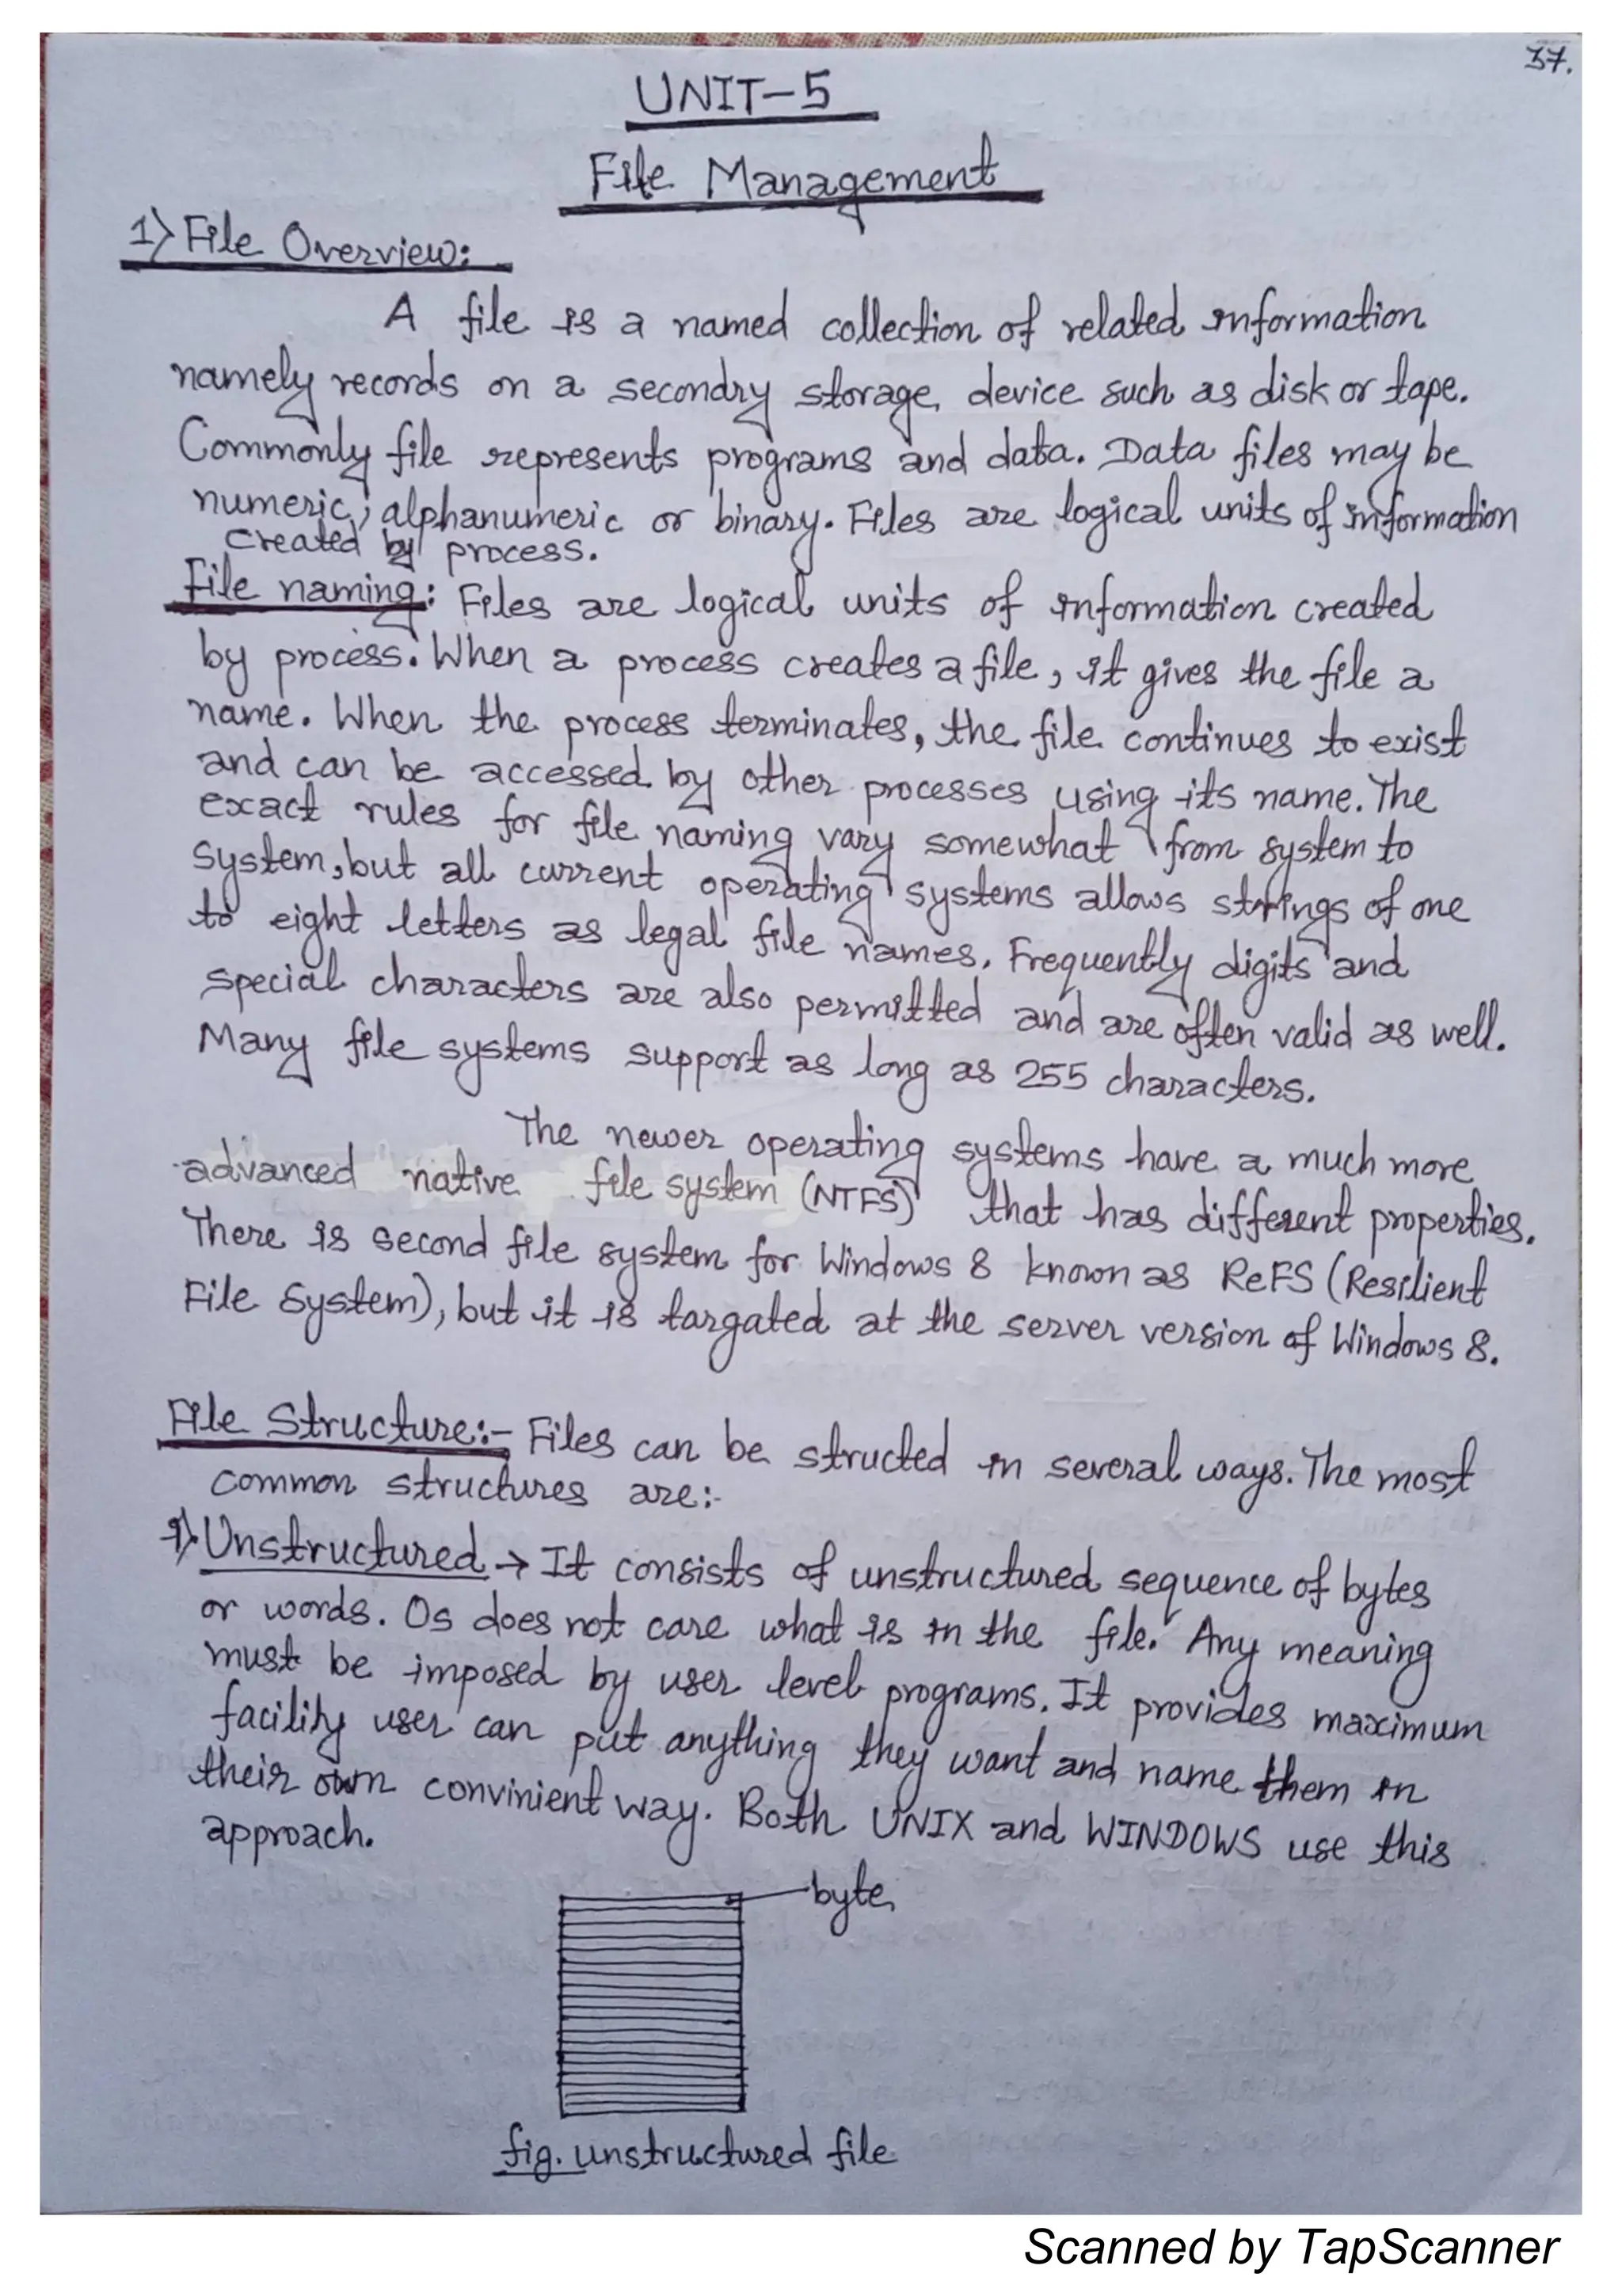 37.
UNIT-5
File Management
1) File Overview:
A file is a named collection of related information
namely records on a secondry storage device such as disk or tape.
Commonly file represents programs and data. Data files may be
numeric, alphanumeric or binary. Files are logical units of information
created by process.
File naming: Files are logical units of information created
by process. When a process creates a file, it gives the file a
name. When the process terminates, the file continues to exist
and can be accessed by other processes using its name. The
exact rules for file naming vary somewhat from system to
system, but all current operating systems allows strings of one
to eight letters as legal file names. Frequently digits and
special characters are also permitted and are often valid as well.
Many file systems support as long as 255 characters.
The newer operating systems have a much more
advanced native file system (NTFS) that has different properties.
There is second file system for Windows 8 known as ReFS (Resilient
File System), but it is targated at the server version of Windows 8.
File Structure:- Files can be structed in several ways. The most
common structures are:-
i) Unstructured → It consists of unstructured sequence of bytes
or words. Os does not care what is in the file. Any meaning
must be imposed by user level programs. It provides maximum
facility user can put anything they want and name them in
their own convinient way. Both UNIX and WINDOWS use this
approach.
byte
fig. unstructured file
Scanned by TapScanner